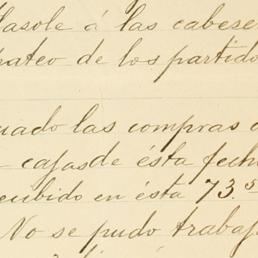 dasole á las cabese
rateo de los partido
uado las compras d
- cajas de ésta fech
ecibido en ésta 73.5
No se pudo trabaj